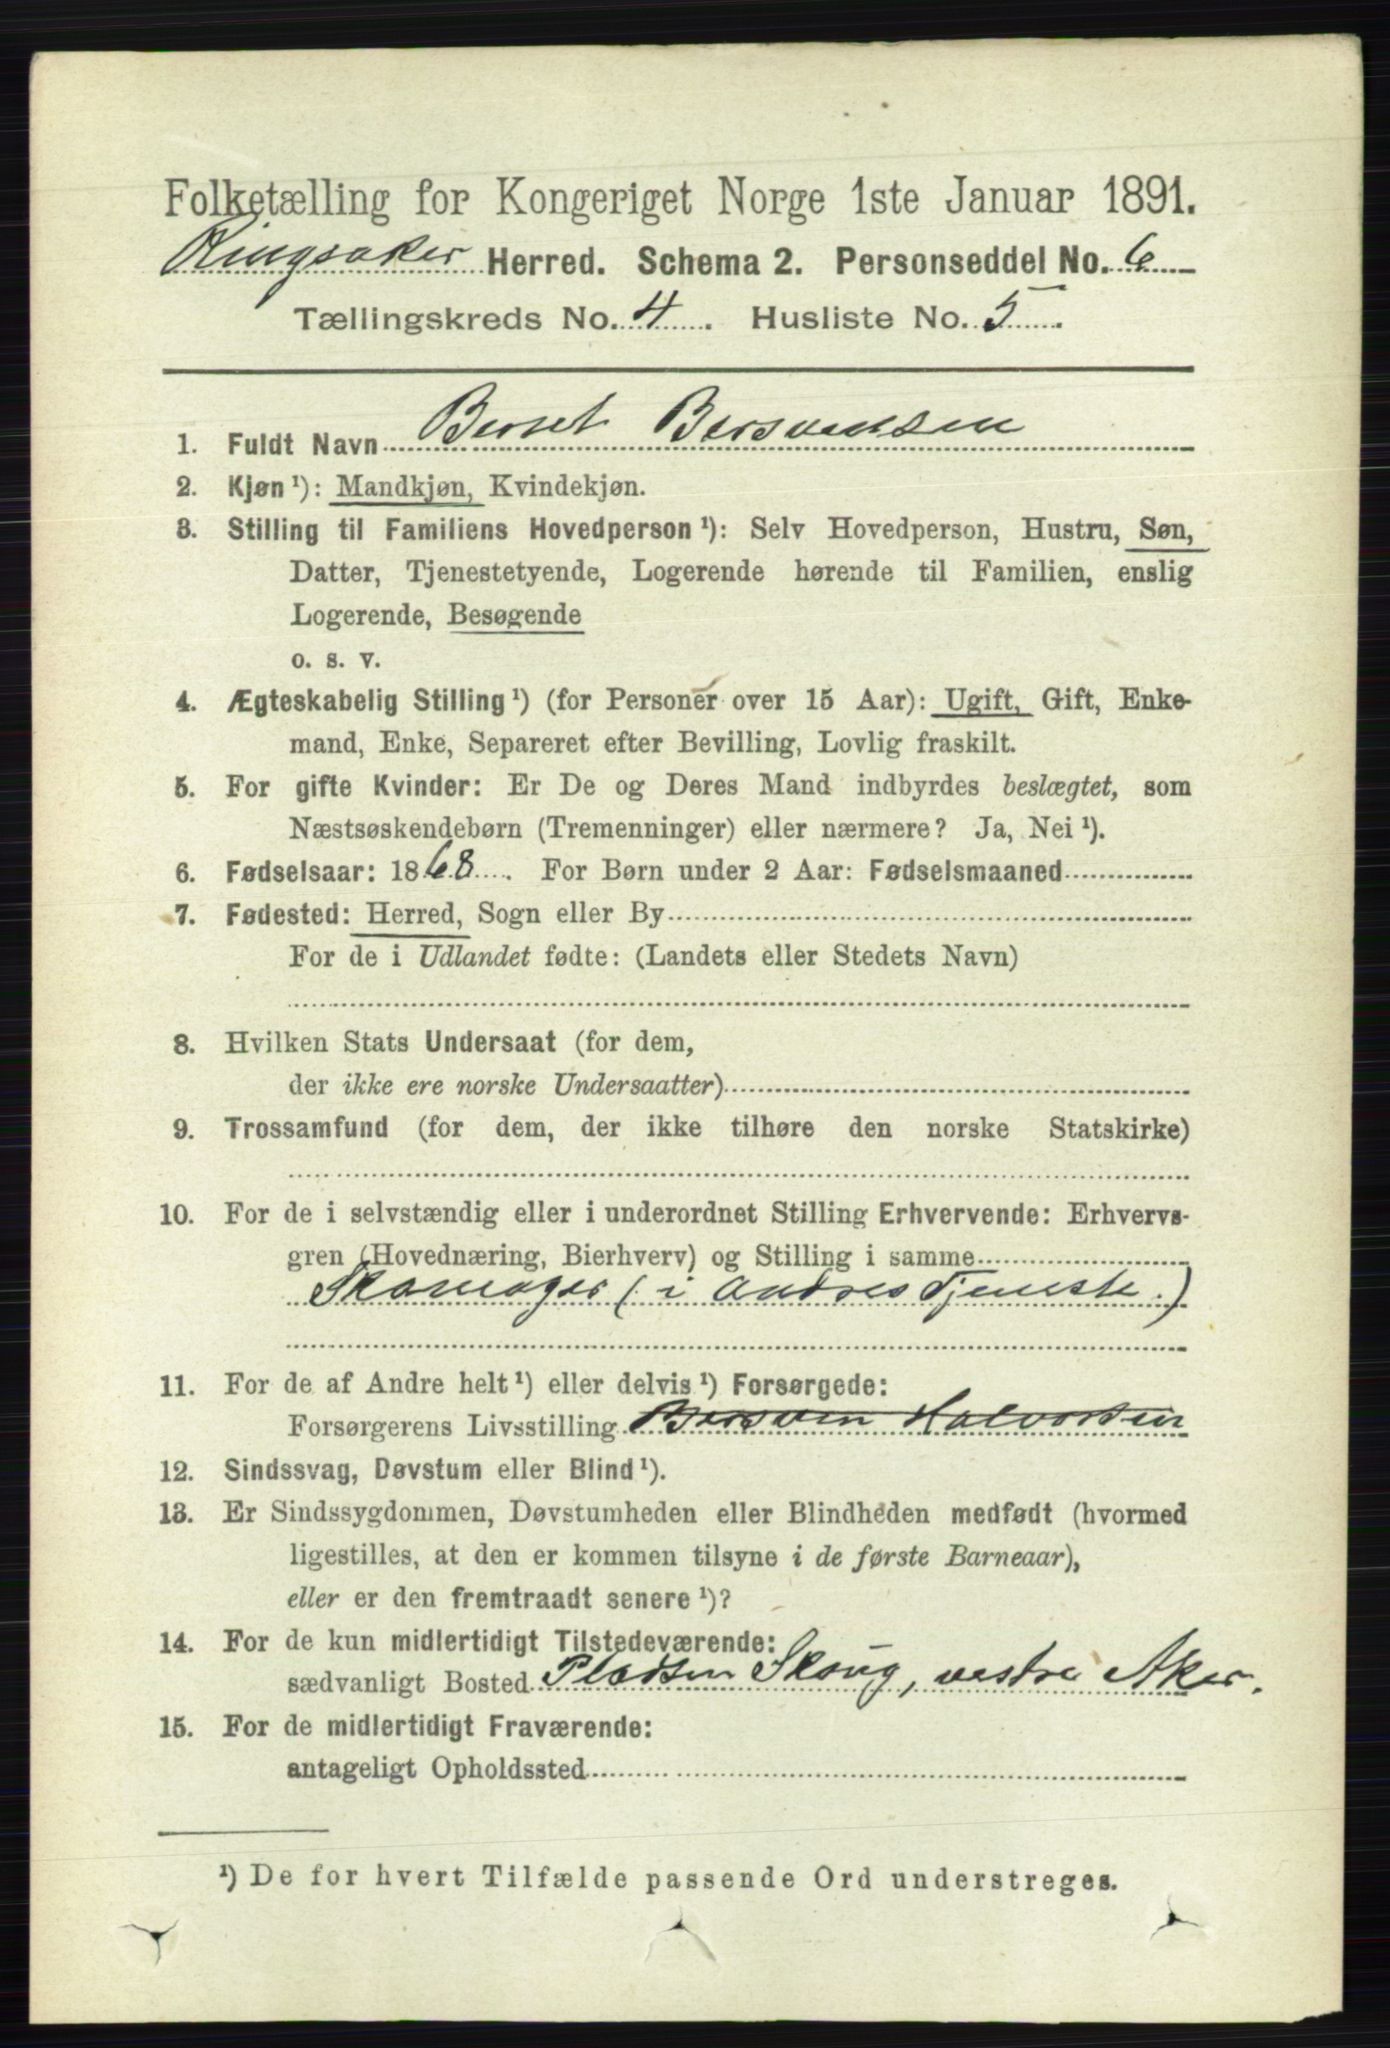 Folketælling for Kongeriget Norge 1ste Januar 1891.
Ringsaker Herred. Schema 2. Personseddel No. 6
Tællingskreds No. 4. Husliste No. 5.
1. Fuldt Navn Berset Bersvensen
2. Kjøn ¹): Mandkjøn, Kvindekjøn.
3. Stilling til Familiens Hovedperson ¹): Selv Hovedperson, Hustru, Søn,
Datter, Tjenestetyende, Logerende hørende til Familien, enslig
Logerende, Besøgende
o. s. v.
4. Ægteskabelig Stilling ¹) (for Personer over 15 Aar): Ugift, Gift, Enke-
mand, Enke, Separeret efter Bevilling, Lovlig fraskilt.
5. For gifte Kvinder: Er De og Deres Mand indbyrdes beslægtet, som
Næstsøskendebørn (Tremenninger) eller nærmere? Ja, Nei ¹).
6. Fødselsaar: 1868. For Børn under 2 Aar: Fødselsmaaned
7. Fødested: Herred, Sogn eller By
For de i Udlandet fødte: (Landets eller Stedets Navn)
8. Hvilken Stats Undersaat (for dem,
der ikke ere norske Undersaatter)
9. Trossamfund (for dem, der ikke tilhøre den norske Statskirke)
10. For de i selvstændig eller i underordnet Stilling Erhvervende: Erhvervs-
gren (Hovednæring, Bierhverv) og Stilling i samme
Skomager (i Andres Tjeneste.)
11. For de af Andre helt ¹) eller delvis ¹) Forsørgede:
Forsørgerens Livsstilling Bersven Halvorsen
12. Sindssvag, Døvstum eller Blind ¹).
13. Er Sindssygdommen, Døvstumheden eller Blindheden medfødt (hvormed
ligestilles, at den er kommen tilsyne i de første Barneaar),
eller er den fremtraadt senere ¹)?
14. For de kun midlertidigt Tilstedeværende:
sædvanligt Bosted Pladsen Skoug, vestre Aker.
15. For de midlertidigt Fraværende:
antageligt Opholdssted
¹) De for hvert Tilfælde passende Ord understreges.